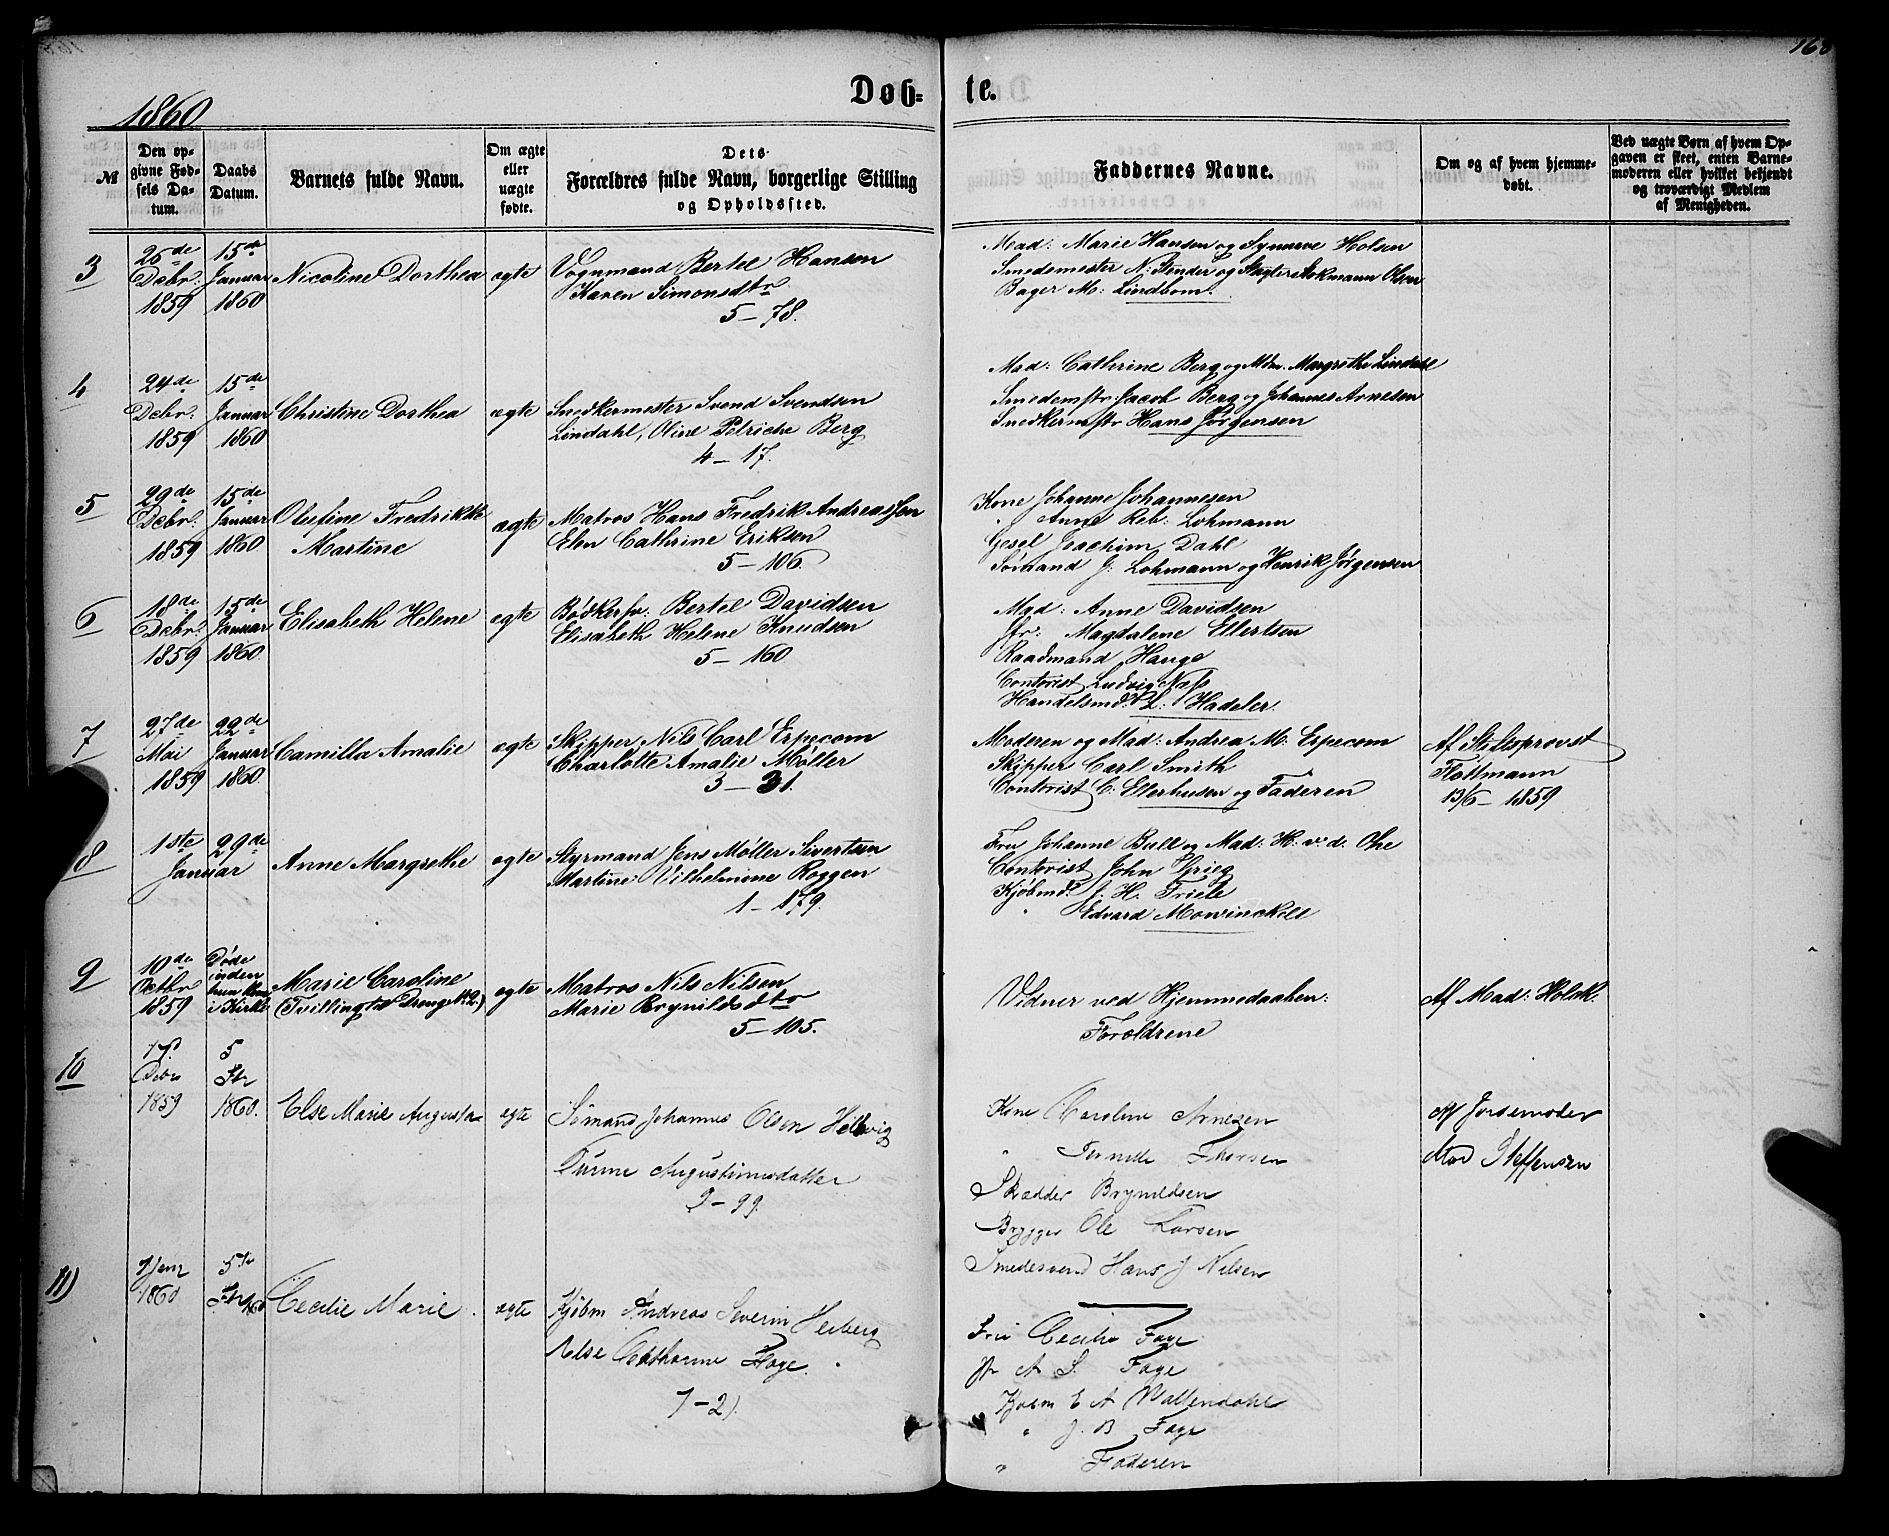 168
1860
Døb-
te.
№
Den op-
givne Fød-
sels Da-
tum.
Daabs
Datum.
Barnets fulde Navn.
Om ægte
eller
uægte
fødte.
Dets
Forældres fulde Navn, borgerlige Stilling
og Opholdssted.
Faddernes Navne.
Om og af hvem hjemme-
døbt.
Ved uægte Børn af hvem Op-
gaven er skeet, enten Barne-
moderen eller hvilket bekjendt
og troværdigt Medlem
af Menigheden.
3
26de
Debr.
1859
15de
Januar
1860
Nicoline Dorthea
ægte
Vognmand Bertel Hansen
Karen Simonsdtr
5 – 78.
Mad: Marie Hansen og Synneve Holsen
Smedemester N: Stender og Olsen
Bager M: Lindbom.
4
24de
Debr.
1859
15de
Januar
1860
Christine Dorthea
ægte
Snedkermester Svend Svendsen
Lindahl, Oline Petriche Berg
4 – 17.
Mad: Cathrine Berg og Mdm. Margrethe Lindahl
Smedemstr Jacob Berg og Johannes Arnesen
Snedkermstr Hans Jørgensen
5
29de
Debr.
1859
15de
Januar
1860
Olufine Fredrikke
Martine
ægte
Matros Hans Fredrik Andreassen
Elen Cathrine Eriksen
5 – 106.
Kone Johanne Johannesen
" Anne Reb: Lohmann
Gesel Joachim Dahl
Sømand J: Lohmann og Henrik Jørgensen
6
18de
Debr.
1859
15de
Januar
1860.
Elisabeth Helene
ægte
Bødkersv: Bertel Davidsen
Elisabeth Helene Knudsen
5 – 160
Mad: Anne Davidsen
Jfr: Magdalene Ellertsen
Raadmand Hauge
Contorist Ludvig Næss
Handelsmd. L: Hadeler.
7
27de
Mai
1859
22de
Januar
1860.
Camilla Amalie
ægte
Skipper Nils Carl Especom
Charlotte Amalie Møller
3 – 31.
Moderen og Mad: Andrea M: Especom
Skipper Carl Smith
Contorist C. Ellerhusen og Faderen
Af Stiftsprovst
Flottmann
13/6 – 1859
8
1ste
Januar
29de
Anne Margrethe
ægte
Styrmand Jens Møller Sivertsen
Martine Vilhelmine Roggen
1 – 179.
Fru Johanne Bull og Mad: H. v. d. Ohe
Contorist John Grieg
Kjøbmd. J. H. Friele
" Edvard Mowinckell
9
10de
Octbr
1859
Døde
inden
hun kom
i Kirke
Marie Caroline
(Tvilling til Dreng № 2.)
ægte
Matros Nils Nilsen
Marie Brynildsdtr
5 – 105.
Vidner ved Hjemmedaaben:
Forældrene
Af Mad: Holck.
10
17.
Debr
1859
5
Fbr
1860.
Else Marie Augusta
ægte
Sömand Johannes Olsen Hellevig
Augustinusdatter
2 – 99.
Kone Caroline Arnesen
" Thorsen
Skrædder Brynildsen
Brygger Ole Larsen
Smedesvend Hans J Nilsen
Af Jordemoder
Mad Steffensen
11)
7 Janr
1860
5te
Fbr 1860
Cecilie Marie
ægte
Kjöbm Andreas Severin Heiberg
Else Cathrine Faye.
7 – 2).
Fru Cecilie Faye
Jfr A S. Faye
Kjöbm E A Wallendahl
" J. B Faye
" Faderen